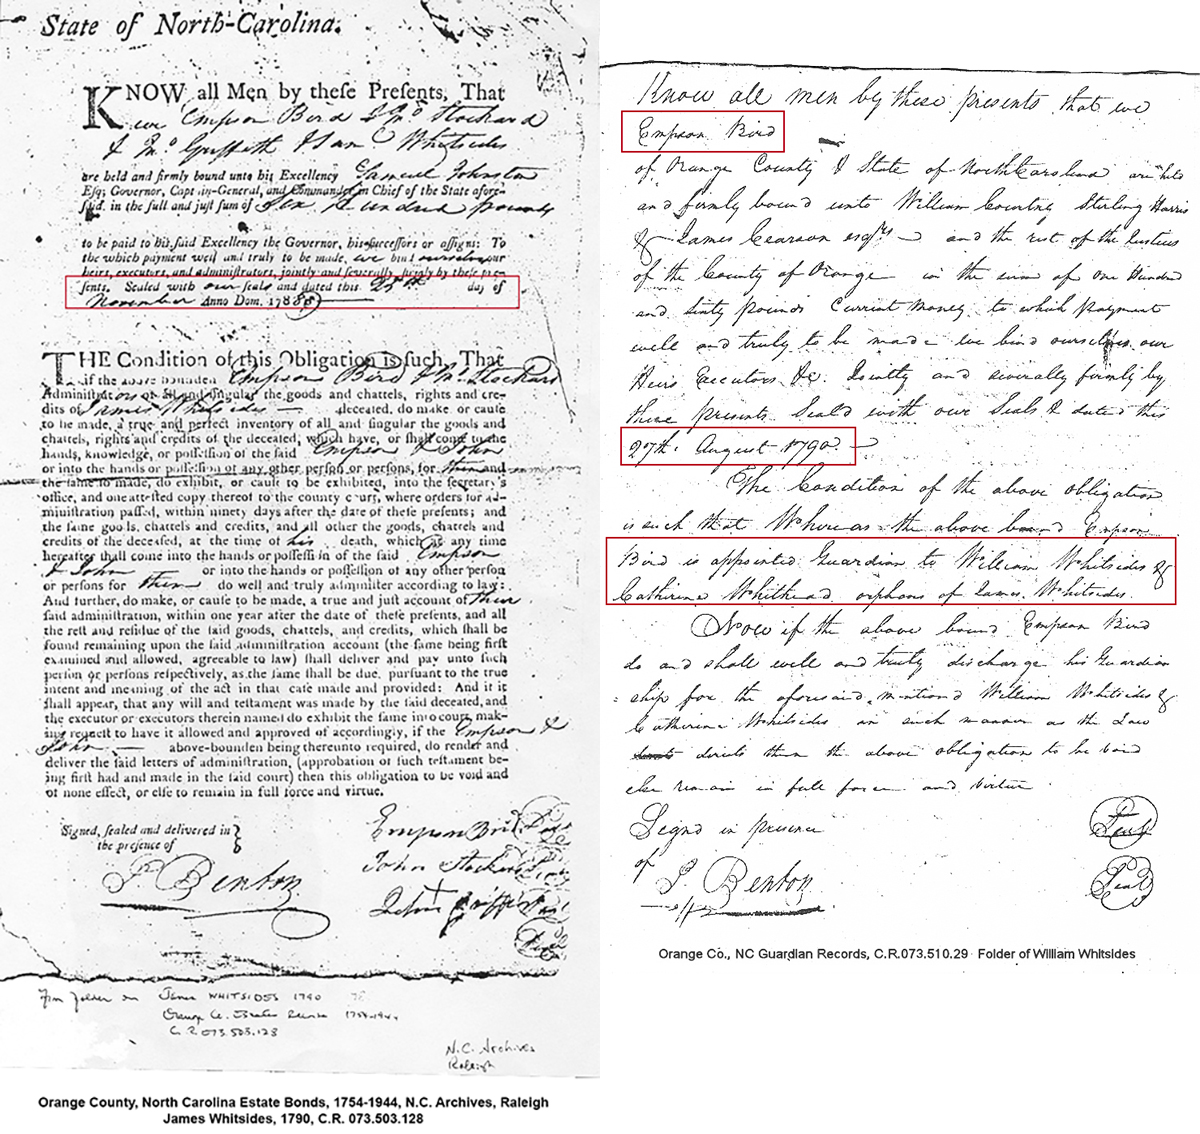 State of North-Carolina.
KNOW all Men by these Presents, That
we Empson Bird & Jno Stockard
& Jno Griffeth & Sam Whitsides
are held and firmly bound unto his Excellency Samuel Johnston
Esq; Governor, Capt in-General, and Commander in Chief of the State afore-
said, in the full and just sum of Six Hundred pounds
to be paid to his said Excellency the Governor, his successors or assigns: To
the which payment well and truly to be made, we bind ourselves our
heirs, executors, and administrators, jointly and severally firmly by these pre-
sents. Sealed with our seals and dated this 25th day of
November Anno Dom. 1788
THE Condition of this Obligation is such, That
if the above bounden Empson Bird & Jno Stockard
Administrators of all and singular the goods and chattels, rights and cre-
dits of James Whitsides deceased, do make or cause
to be made, a true and perfect inventory of all and singular the goods and
chattels, rights and credits of the deceased, which have, or shall come to the
hands, knowledge, or possession of the said Empson & John
or into the hands or possession of any other person or persons, for them and
the same so made, do exhibit, or cause to be exhibited, into the secretary's
office, and one attested copy thereof to the county court, where orders for ad-
ministration passed, within ninety days after the date of these presents; and
the same goods, chattels and credits, and all other the goods, chattels and
credits of the deceased, at the time of his death, which at any time
hereafter shall come into the hands or possession of the said Empson
& John or into the hands or possession of any other person
or persons for them do well and truly administer according to law:
And further, do make, or cause to be made, a true and just account of their
said administration, within one year after the date of these presents, and all
the rest and residue of the said goods, chattels, and credits, which shall be
found remaining upon the said administration account (the same being first
examined and allowed, agreeable to law) shall deliver and pay unto such
person or persons respectively, as the same shall be due, pursuant to the true
intent and meaning of the act in that case made and provided: And if it
shall appear, that any will and testament was made by the said deceased, and
the executor or executors therein named do exhibit the same into court, mak-
ing request to have it allowed and approved of accordingly, if the Empson &
John above-bounden being thereunto required, do render and
deliver the said letters of administration, (approbation of such testament be-
ing first had and made in the said court) then this obligation to be void and
of none effect, or else to remain in full force and virtue.
Signed, sealed and delivered in
the presence of
J Benton
Empson Bird Seal
John Stockard Seal
John Griffeth Seal
Seal
From folder on James WHITSIDES 1790
Orange Co. Estate Records 1754-1944
C.R. 073.503.128
N.C. Archives
Raleigh
Orange County, North Carolina Estate Bonds, 1754-1944, N.C. Archives, Raleigh
James Whitsides, 1790, C.R. 073.503.128
Know all men by these presents that we
Empson Bird
of Orange County & State of North Carolina are held
and firmly bound unto William Courtney Sterling Harris
& James Pearson esqrs and the rest of the Justices
of the County of Orange in the sum of one Hundred
and sixty pounds Current money to which payment
well and truly to be made we bind ourselves our
Heirs Executors &c. Jointly and severally firmly by
these presents Seald with our Seals & dated this
27th. August 1790
The Condition of the above obligation
is such that Whereas the above bound Empson
Bird is appointed Guardian to William Whitsides &
Catherine Whithead orphans of James Whitsides.
Now if the above bound Empson Bird
do and shall well and truly discharge his Guardian
=ship for the aforesaid mentiond William Whitsides &
Catherine Whitsides in such manner as the Law
directs then the above obligation to be void
else remain in full force and virtue
Segnd in presence
of
J Benton
Seal
Seal
Orange Co., NC Guardian Records, C.R.073.510.29 Folder of William Whitsides